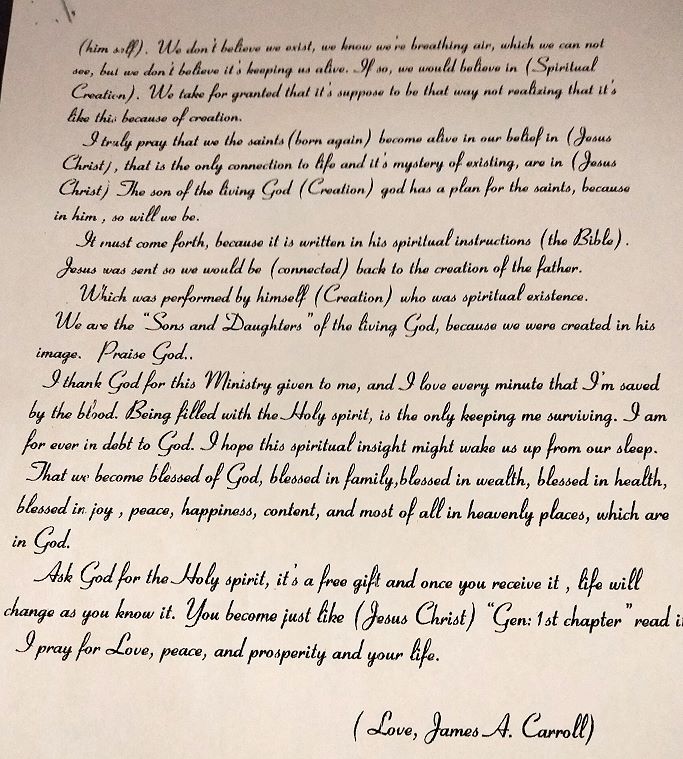 (him self). We don't believe we exist, we know we're breathing air, which we can not
see, but we don't believe it's keeping us alive. If so, we would believe in (Spiritual
Creation). We take for granted that it's suppose to be that way not realizing that it's
like this because of creation.
I truly pray that we the saints (born again) become alive in our belief in (Jesus
Christ), that is the only connection to life and it's mystery of existing, are in (Jesus
Christ) The son of the living God (Creation) god has a plan for the saints, because
in him , so will we be.
It must come forth, because it is written in his spiritual instructions (the Bible) .
Jesus was sent so we would be (connected) back to the creation of the father.
Which was performed by himself (Creation) who was spiritual existence.
We are the "Sons and Daughters "of the living God, because we were created in his
image. Praise God..
I thank God for this Ministry given to me, and I love every minute that I'm saved
by the blood. Being filled with the Holy spirit, is the only keeping me surviving. I am
for ever in debt to God. I hope this spiritual insight might wake us up from our sleep.
That we become blessed of God, blessed in family,blessed in wealth, blessed in health,
blessed in joy , peace, happiness, content, and most of all in heavenly places, which are
in God.
Ask God for the Holy spirit, it's a free gift and once you receive it , life will
change as you know it. You become just like (Jesus Christ) "Gen: 1st chapter "read i
I pray for Love, peace, and prosperity and your life.
( Love, James A. Carroll)